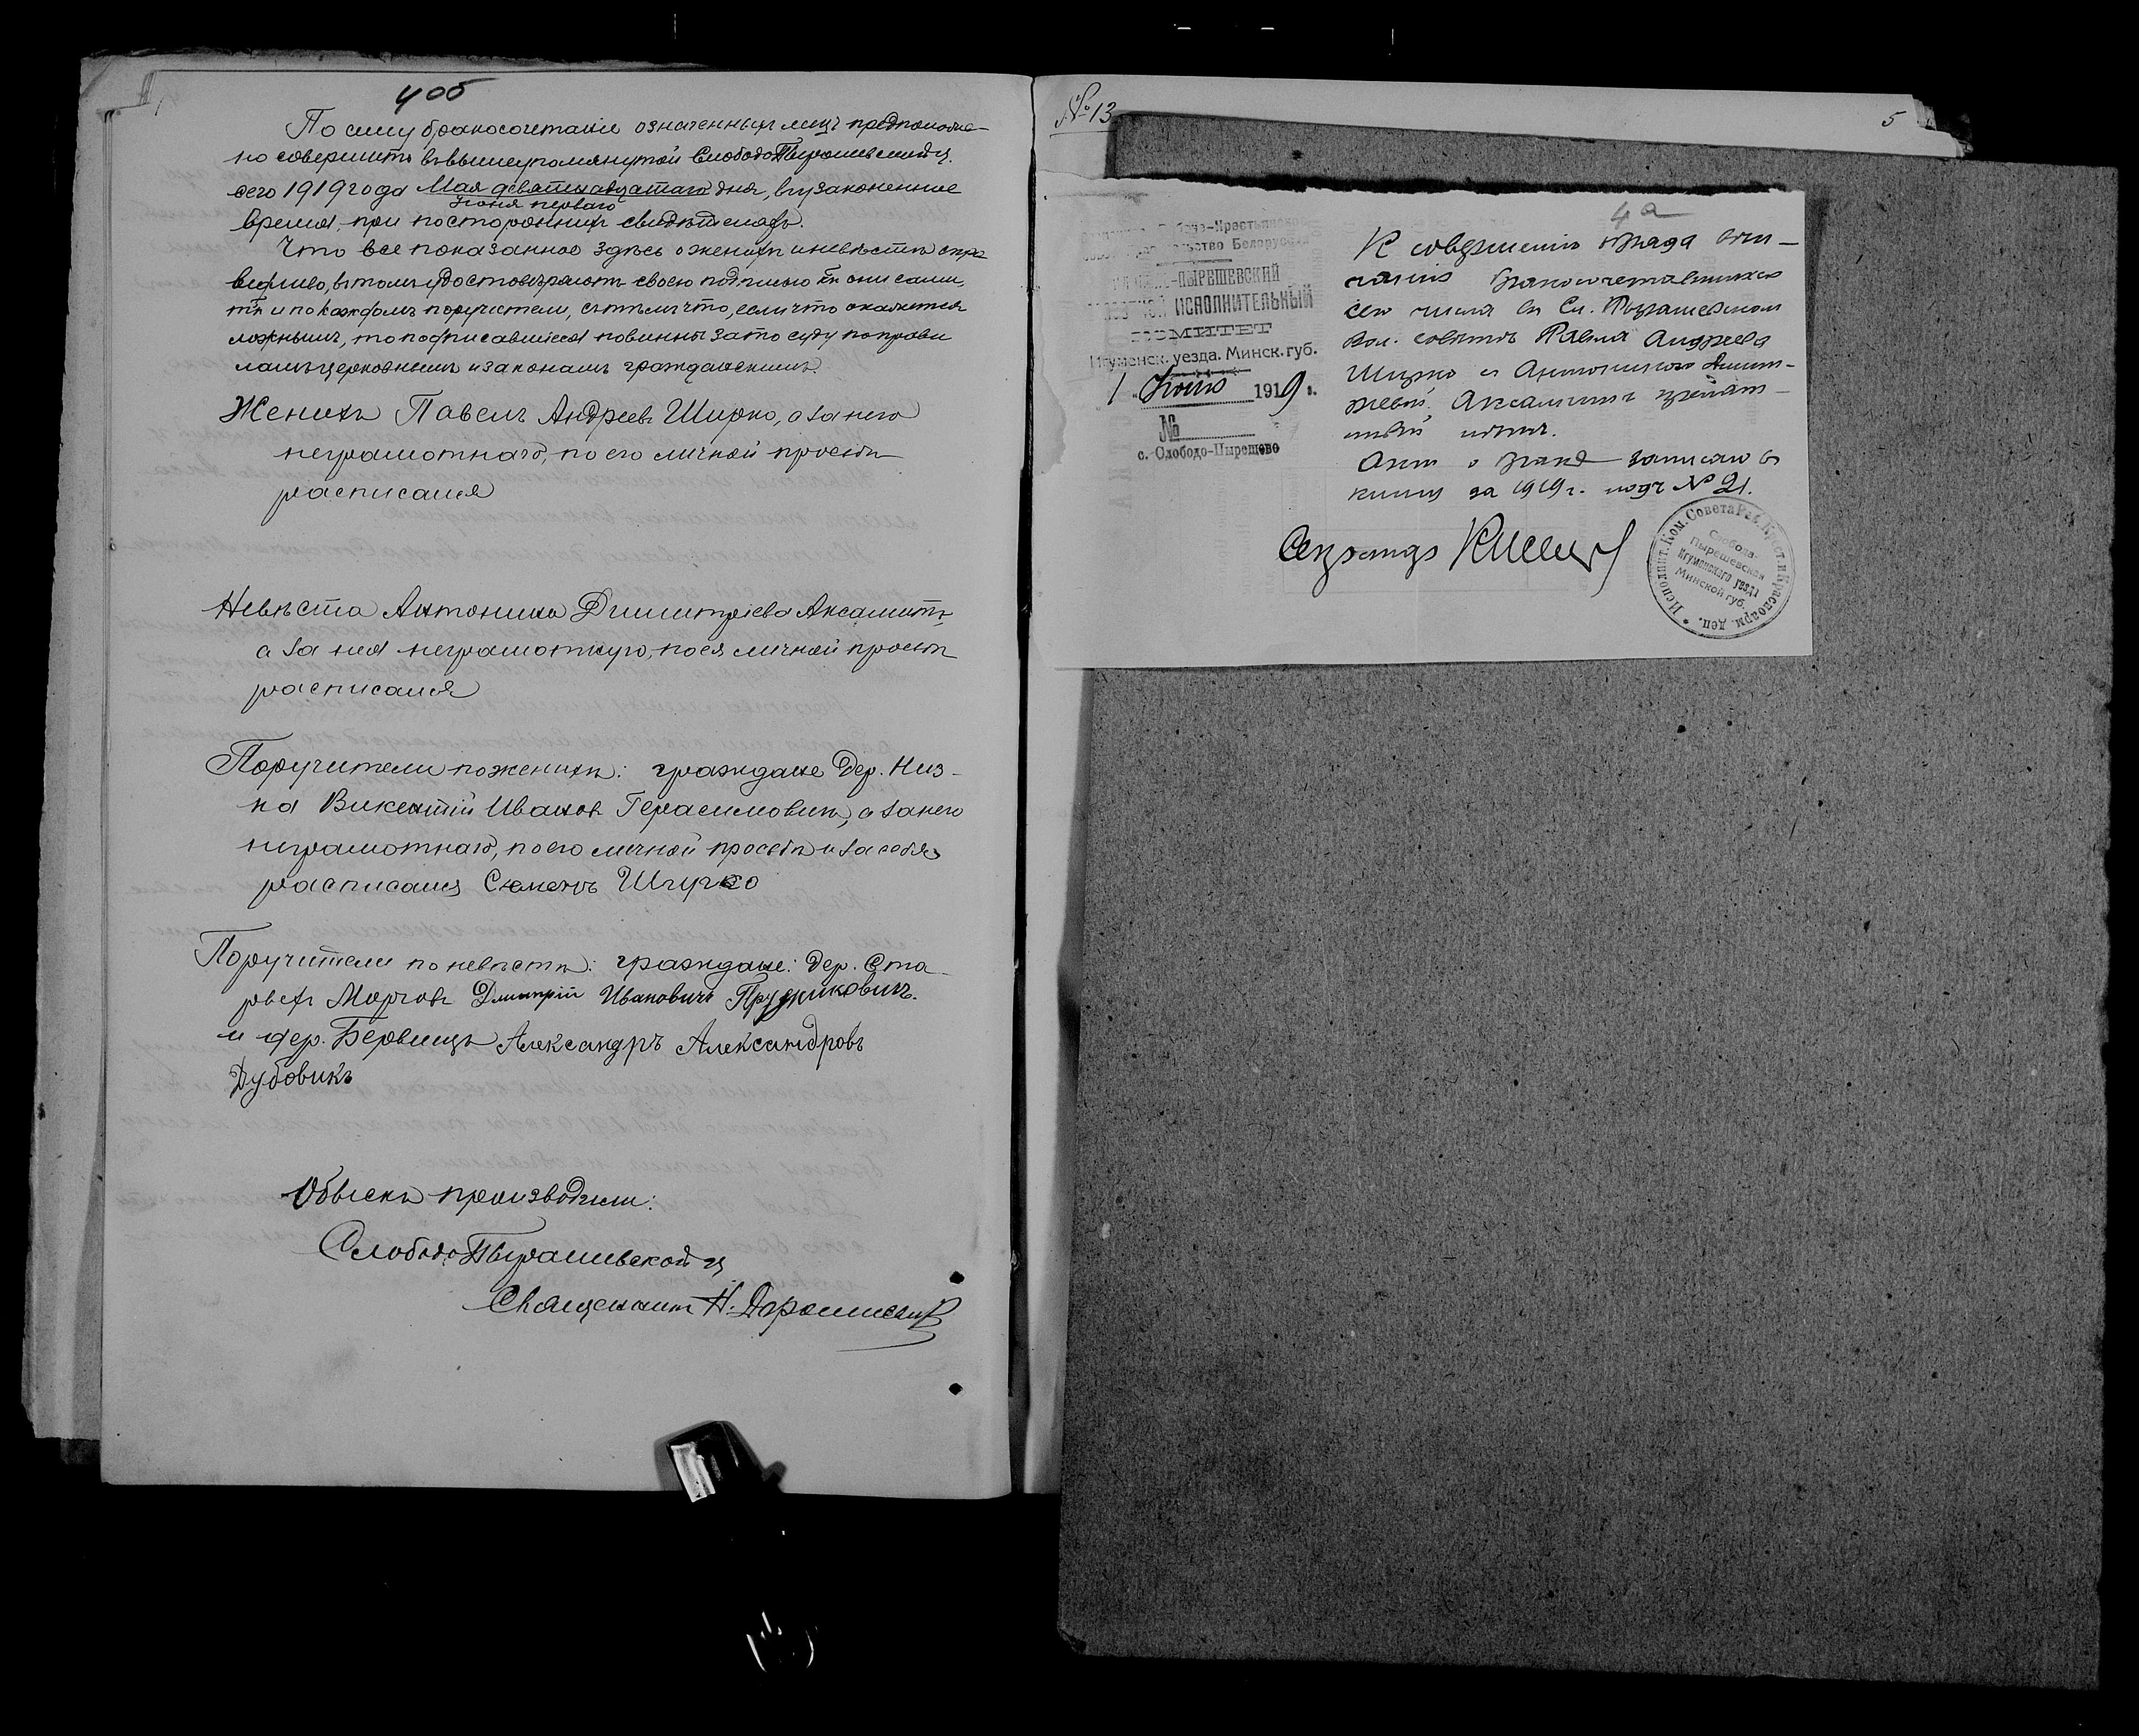 4об
По сему бракосочетаніе означенныхъ лицъ предположе-
но совершить въ вышеупомянутой Слободо Пырашевской ц.
сего 1919 года Мая девятнадцатаго дня, въ узаконенное
Іюня перваго
время при постороннихъ свидѣтеляхъ.
Что все показанное здѣсь о женихѣ и невѣстѣ спра
ведливо, въ томъ удостовѣряютъ своею подписью какъ они сами,
такъ и по каждомъ поручители, съ тѣмъ что, если что окажется
ложнымъ, то подписавшіеся повинны за то суду по прави
ламъ церковнымъ и законамъ гражданскимъ.
Женихъ Павелъ Андреевъ Ширко, а за него
неграмотнаго, по его личной просьбѣ
расписался
Невѣста Антонина Димитріева Аксамитъ,
а за нея неграмотную, по ея личной просьбѣ
расписался
Поручители по женихѣ: граждане дер. Низ-
ка Викентій Ивановъ Герасимовичъ, а за него
неграмотнаго, по его личной просьбѣ и за себя
расписался Семенъ Ширко
Поручители по невѣстѣ: граждане: дер. Ста-
рыхъ Морговъ Дмитрій Ивановичъ Прудниковичъ.
и дер. Бервищъ Александръ Александровъ
Дубовикъ
Обыскъ производили:
Слободо Пырашевской ц
Священникъ Н.
№ 13
5
4а
Крестьянское
Белорусс
-ПЫРЕШЕВСКИЙ
ИСПОЛНИТЕЛЬНЫЙ
КОМИТЕТ
Игуменск. уезда. Минск. губ.
1 Июня 1919 г.
№
с. Слободо-Пырешево
К совершению обряда вен-
чания бракосочетавшихся
сего числа в Сл. Пырашевском
вол. совете Павла Андреева
Ширко с Антониною Дмит-
риевой Аксамит препят-
ствий нет.
Акт о браке записан в
книгу за 1919 г. под № 21.
Секретарь
Исполнит. Ком. Совета Раб. Крест. и Красноарм. деп.
Слобода-
Пырешевской
Игуменского уезда
Минской губ.